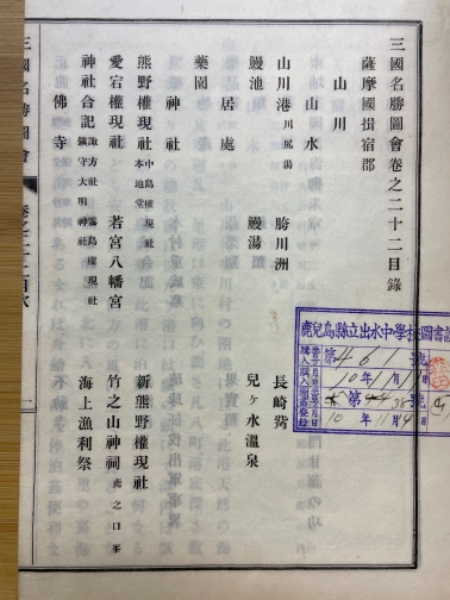 三國名勝圖會卷之二十二目錄
薩摩國揖宿郡
山川
山水
山川港 川尻湯 胯川洲 長崎鼻
鰻池 鰻湯 兒ヶ水溫泉
居處
藥園
神社
熊野權現社 中島權現社 本地堂 新熊野權現社
愛宕權現社 若宮八幡宮 竹之山神祠 鳶之口峯
神社合記 諏方社 霧島權現社 鎭守大明神社 海上漁利祭
佛寺
三國名勝圖會 卷之二十二目次 一
鹿兒島縣立出水中學校圖書
第461號
10年11月
第 98號
10年11月4日